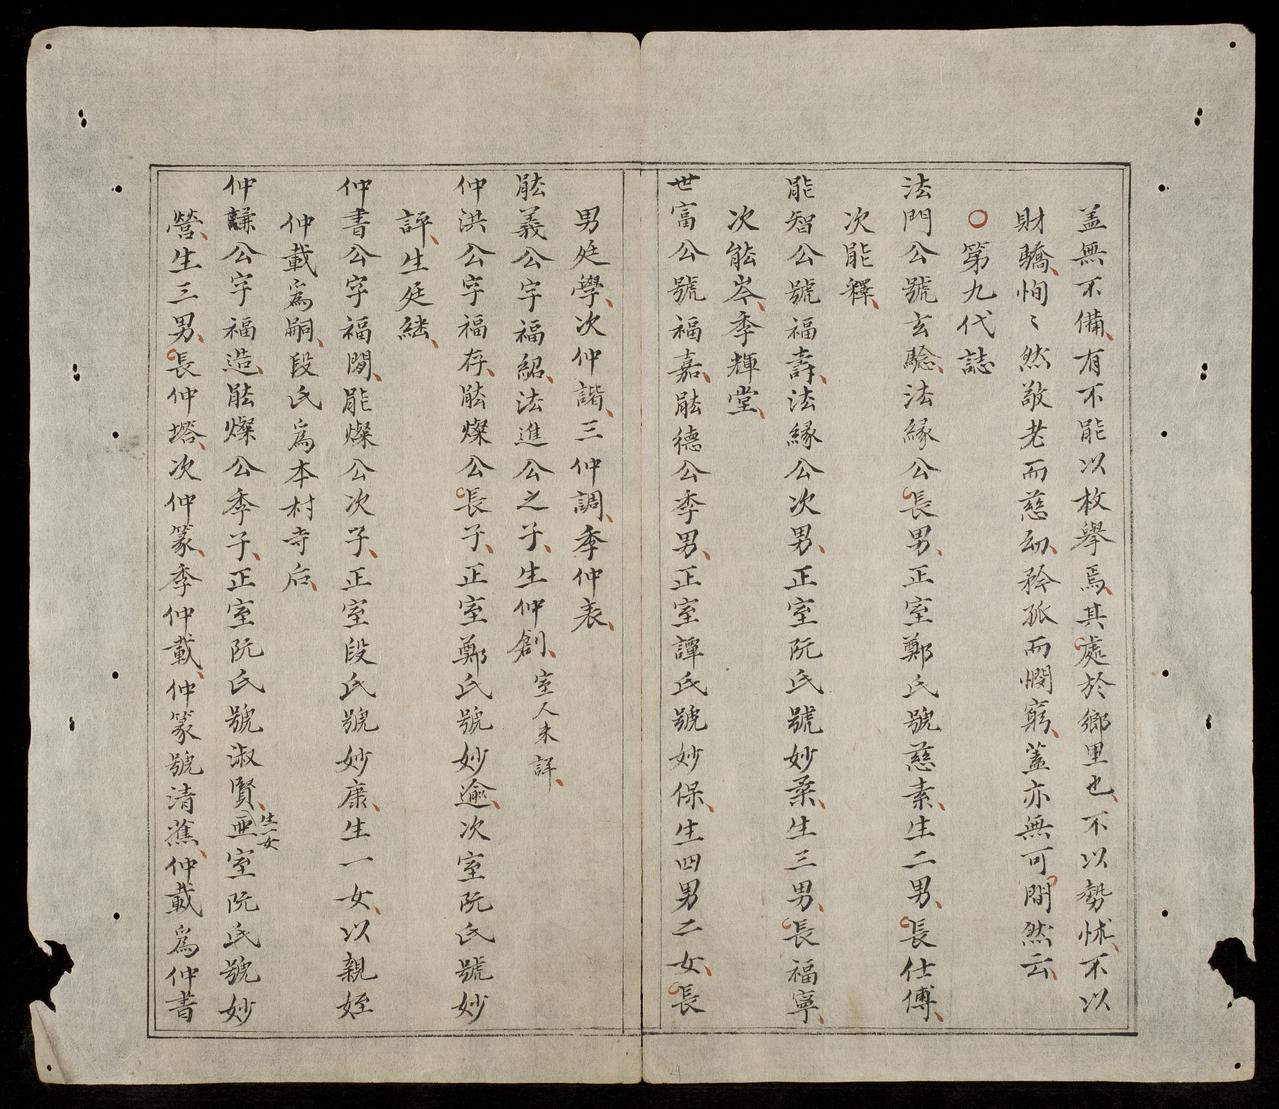 盖無不備有不能以枚舉焉其處於鄉里也不以勢怵不以
財驕恂〻然敬老而慈幼矜孤而憫窮蓋亦無可間然云
○第九代誌
法門公號玄驗法緣公長男正室鄭氏號慈素生二男長仕傅
次能釋
能智公號福壽法緣公次男正室阮氏號妙柔生三男長福寧
次能岑季輝堂
世富公號福嘉能德公季男正室譚氏號妙保生四男二女長
男廷學次仲諧三仲調季仲表
能義公字福紹法進公之子生仲創室人未詳
仲洪公字福存能燦公長子正室鄭氏號妙逾次室阮氏號妙
評生廷繼
仲書公字福閒能燦公次子正室段氏號妙康生一女以親姪
仲載爲嗣段氏爲本村寺后
仲謙公字福造能燦公季子正室阮氏號淑賢生一女亞室阮氏號妙
營生三男長仲塔次仲篆季仲載仲篆號清蕉仲載爲仲書
24